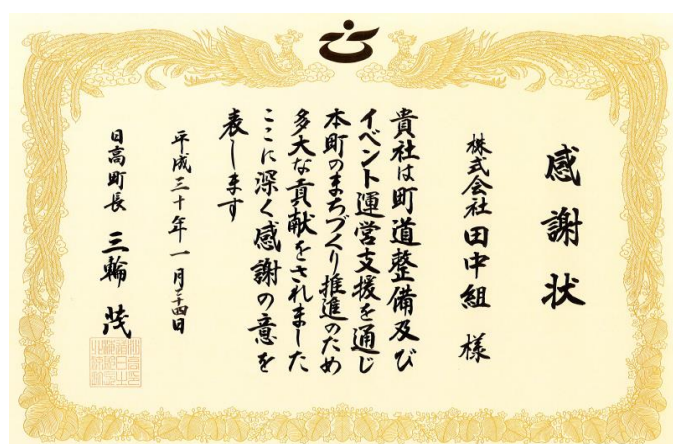 感謝状
株式会社 田中組 様
貴社は町道整備及び
イベント運営支援を通じ
本町のまちづくり推進のため
多大な貢献をされました
ここに深く感謝の意を
表します
平成三十年一月二十四日
日高町長 三輪 茂